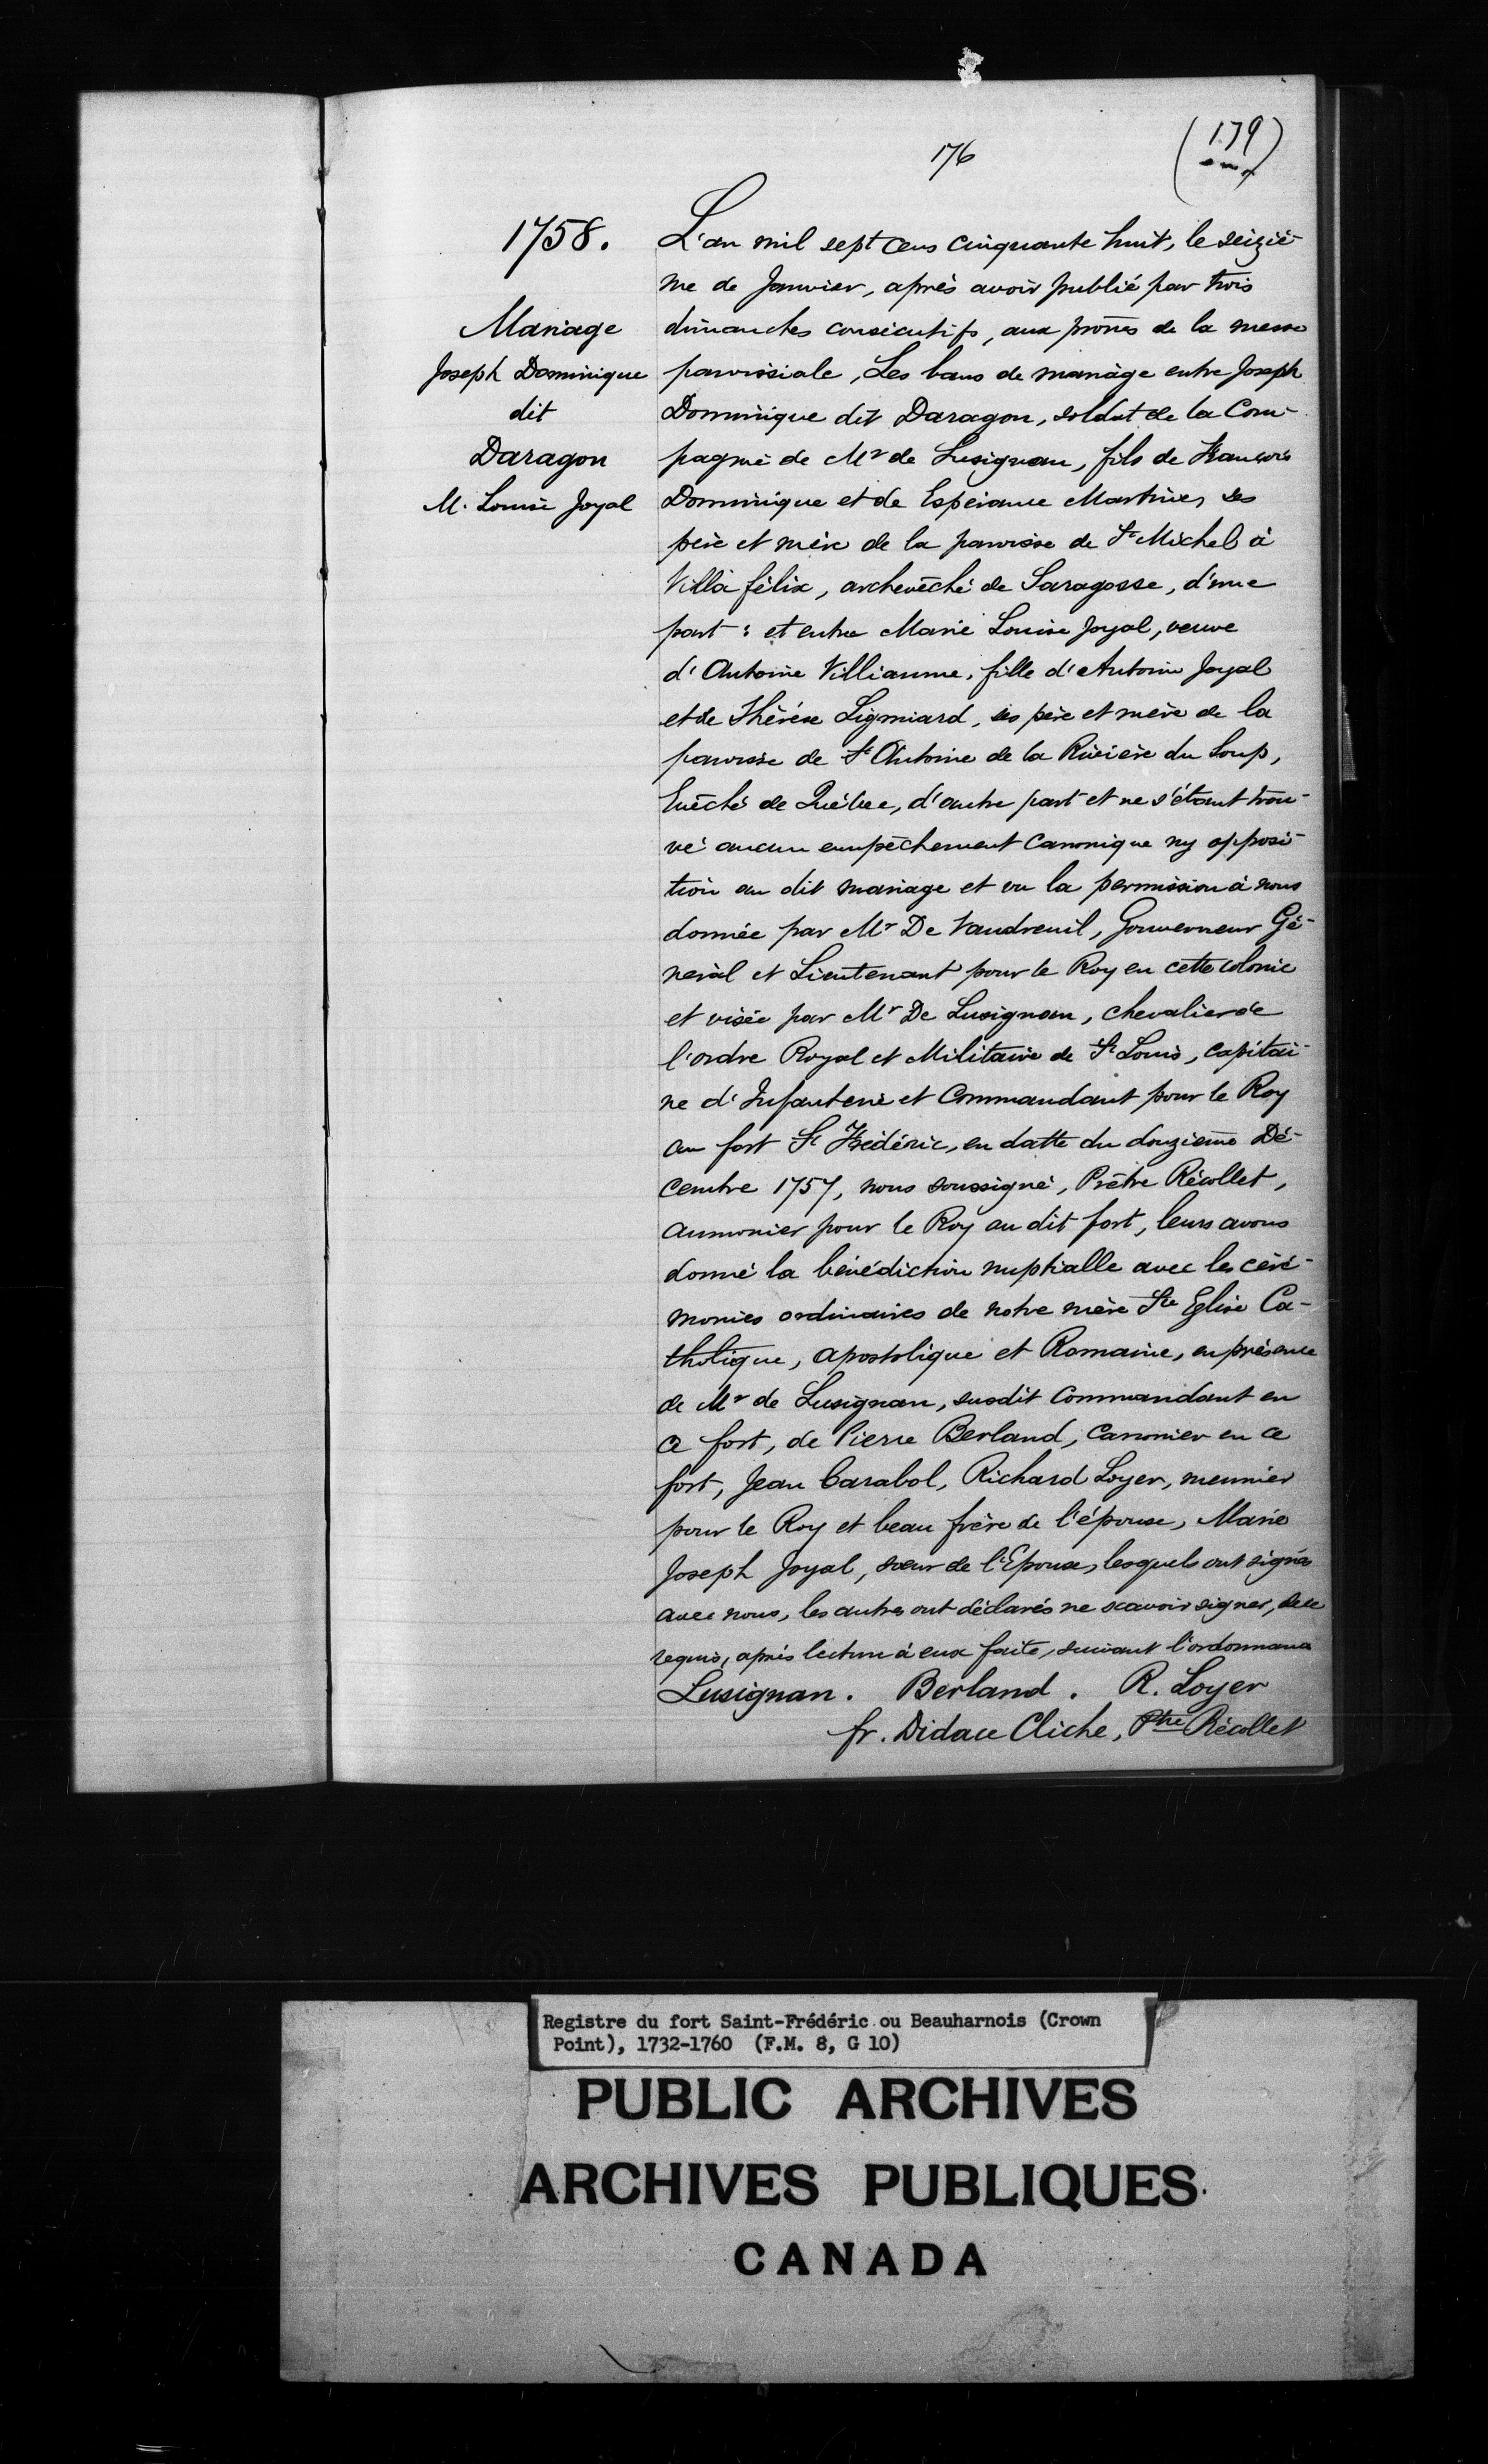 176
(179)
1758.
Mariage
Joseph Dominique
dit
Daragon
M. Louise Joyal
L'an mil sept cens cinquante huit, le seiziè-
me de Janvier, après avoir publié par trois
dimanches consécutifs, aux prônes de la messe
paroissiale, Les bans de mariage entre Joseph
Dominique dit Daragon, soldat de la Com-
pagnie de Mr de Lusignan, fils de François
Dominique et de Espérance Martinès, ses
père et mère de la paroisse de St Michel à
Villa félix, archevêché de Saragosse, d'une
part : et entre Marie Louise Joyal, veuve
d'Antoine Villiaume, fille d'Antoine Joyal
et de Thérèse Ligmiard, ses père et mère de la
paroisse de St Antoine de la Rivière du Loup,
Evêché de Québec, d'autre part et ne s'étant trou-
vé aucun empêchement canonique ny opposi-
tion au dit mariage et vu la permission à nous
donnée par Mr De Vaudreuil, Gouverneur Gé-
néral et Lieutenant pour le Roy en cette colonie
et visée par Mr De Lusignan, chevalier de
l'ordre Royal et Militaire de St Louis, capitai-
ne d'Infanterie et Commandant pour le Roy
au fort St Frédéric, en datte du douzieme Dé-
cembre 1757, nous soussigné, Prêtre Récollet,
aumonier pour le Roy au dit fort, leurs avons
donné la bénédiction nuptialle avec les céré-
monies ordinaires de notre mère Ste Eglise Ca-
tholique, apostolique et Romaine, en présence
de Mr de Lusignan, susdit Commandant en
ce fort, de Pierre Berland, canonier en ce
fort, Jean Carabol, Richard Loyer, meunier
pour le Roy et beau frère de l'épouse, Marie
Joseph Joyal, sœur de l'Epouse, lesquels ont signés
avec nous, les autres ont déclarés ne scavoir signer, de ce
requis, après lecture à eux faite, suivant l'ordonnance
Lusignan. Berland. R. Loyer
fr. Didace Cliche, Ptre Récollet
Registre du fort Saint-Frédéric ou Beauharnois (Crown
Point), 1732-1760 (F.M. 8, G 10)
PUBLIC ARCHIVES
ARCHIVES PUBLIQUES
CANADA